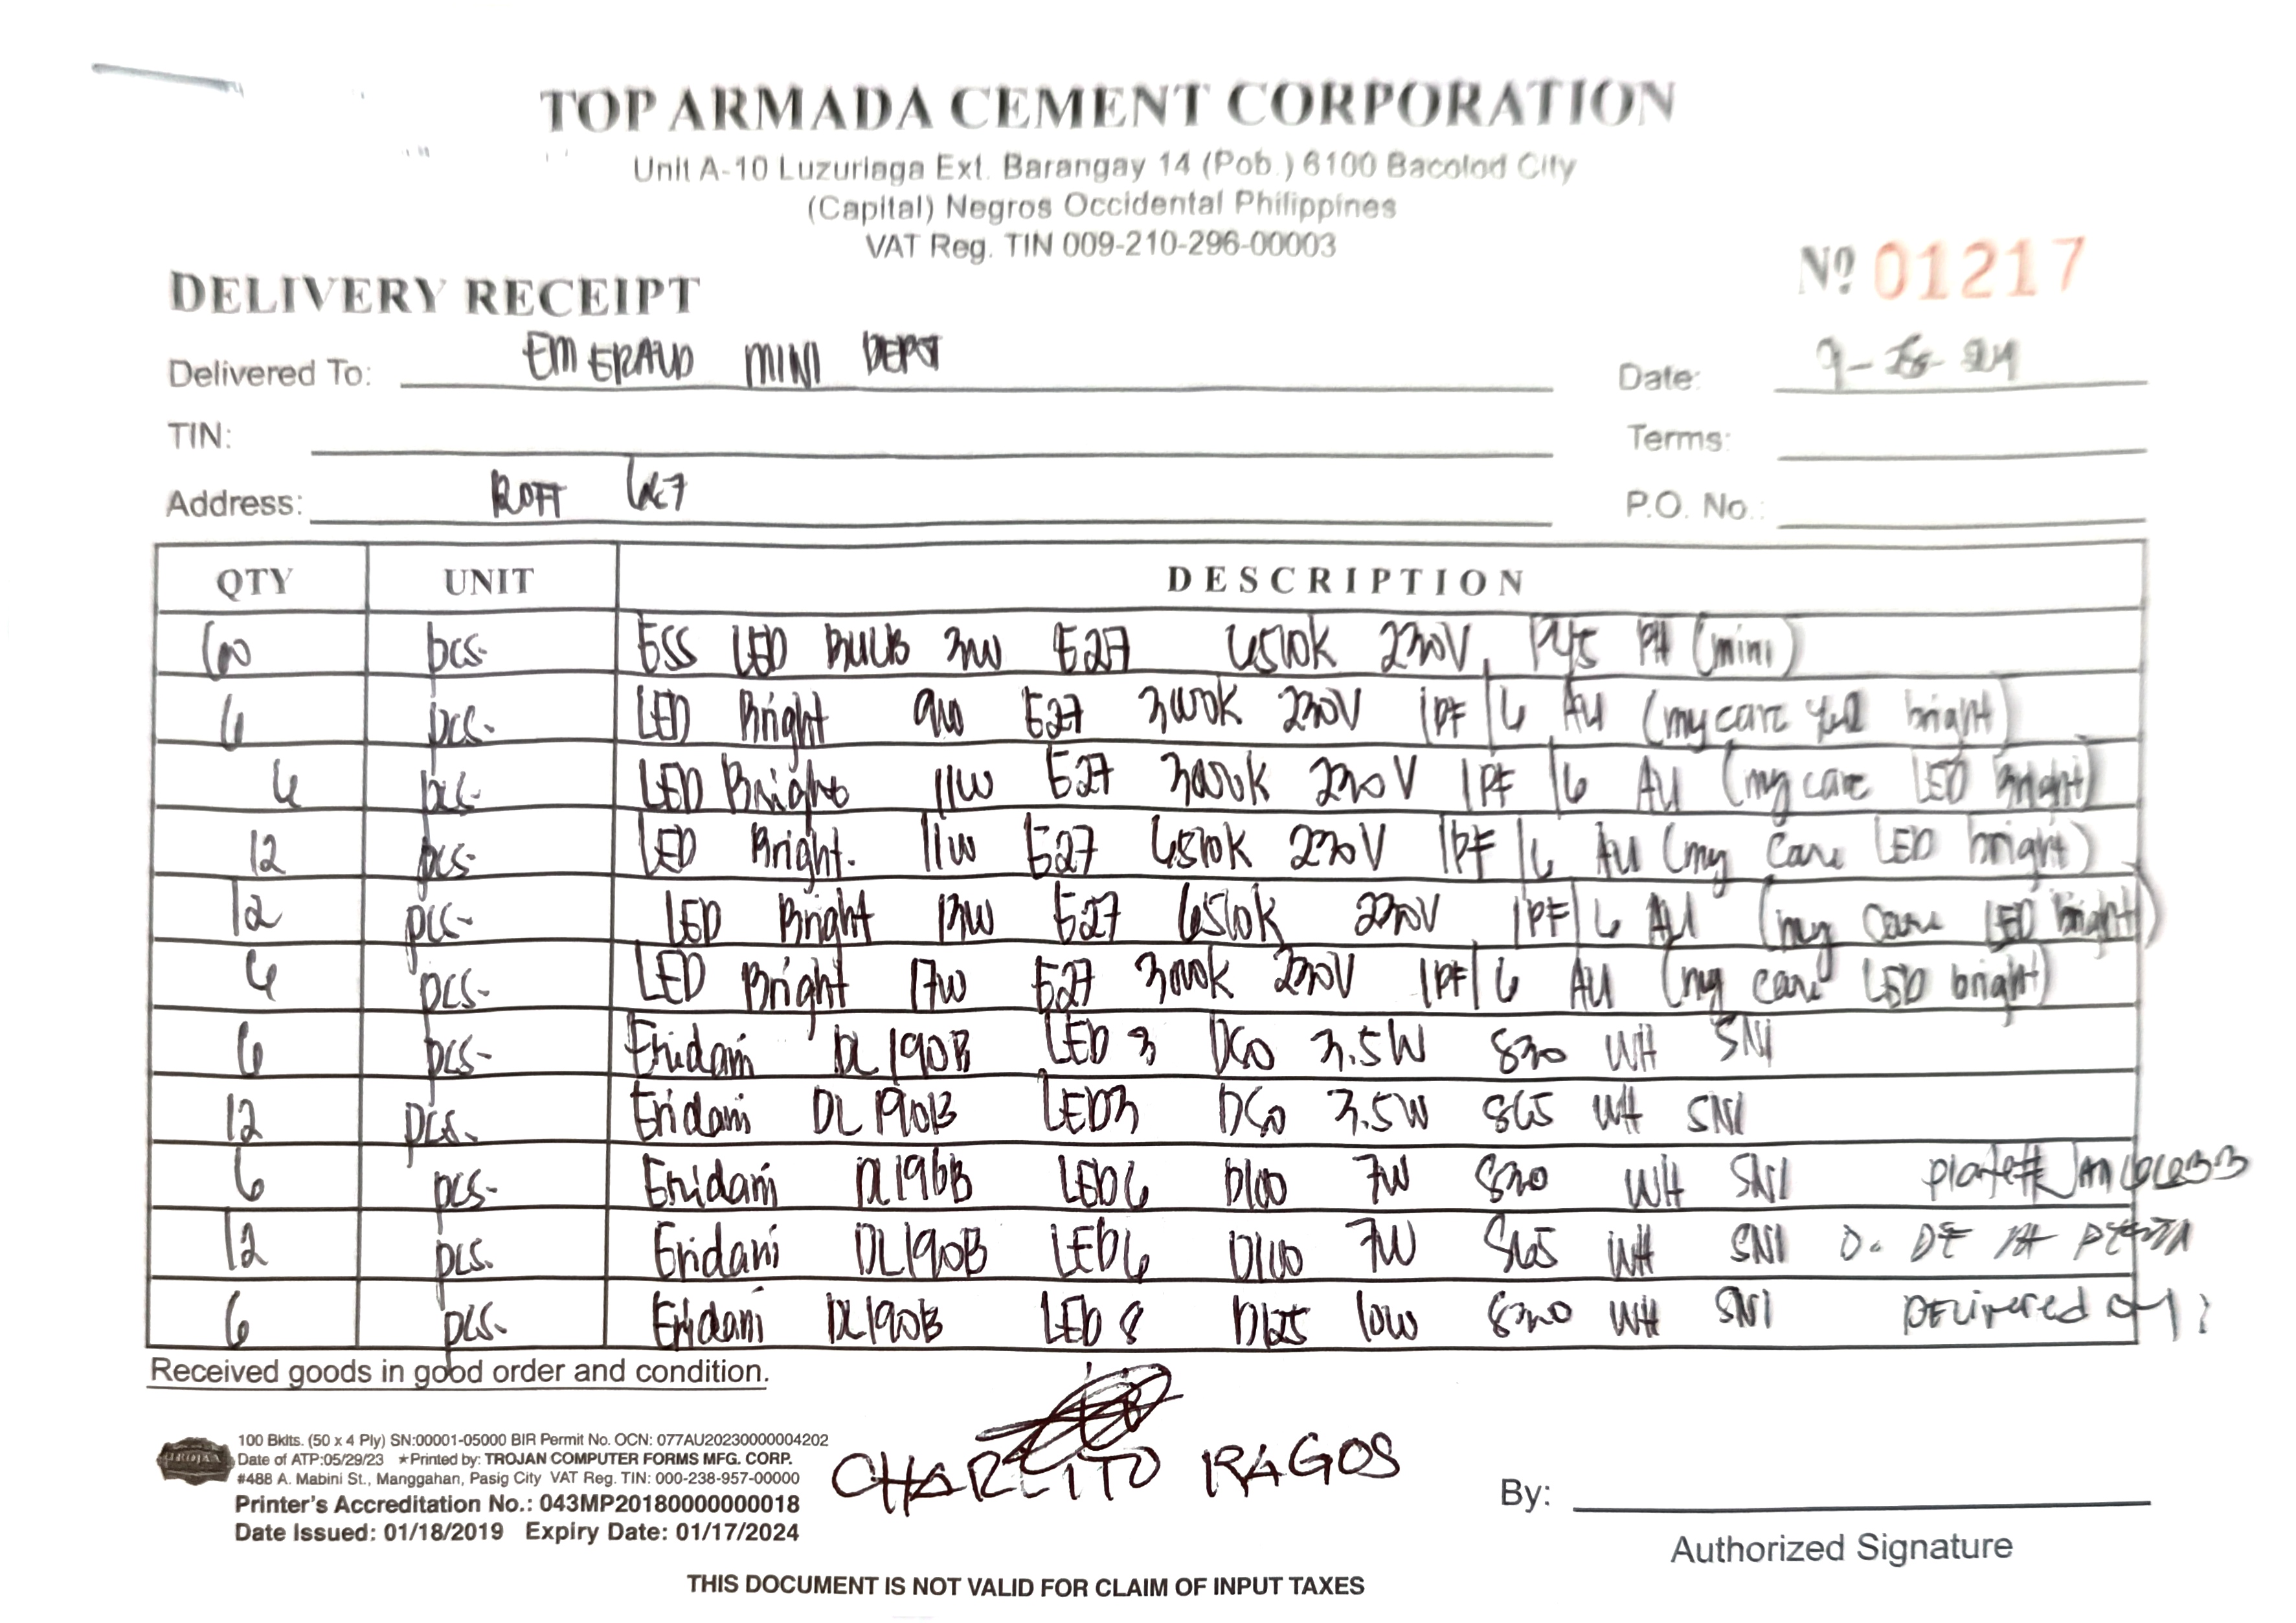 TOP ARMADA CEMENT CORPORATION
Unit A-10 Luzuriaga Ext. Barangay 14 (Pob.) 6100 Bacolod City
(Capital) Negros Occidental Philippines
VAT Reg. TIN 009-210-296-00003
DELIVERY RECEIPT
Nº 01217
Delivered To: EMERAUD MINI DEPOT
Date: 9- -24
TIN:
Terms:
Address:
P.O. No.:
QTY UNIT DESCRIPTION
60 pcs- ESS LED BULB 3W E27 6500K 230V PH (mini)
6 pcs- LED Bright 9W E27 3000K 230V 1PF/6 AU (mycare bright)
6 pcs- LED Bright 11W E27 3000K 230V 1PF/6 AU (my care LED Bright)
12 pcs- LED Bright. 11W E27 6500K 230V 1PF/6 AU (my care LED bright)
12 pcs- LED Bright 13W E27 6500K 230V 1PF/6 AU (my care LED bright)
6 pcs- LED Bright 17W E27 3000K 230V 1PF/6 AU (my care LED bright)
6 pcs- Eridani DL190B LED 3 D60 3.5W 830 WH SNI
12 pcs. Eridani DL190B LED3 D60 3.5W 865 WH SNI
6 pcs- Eridani DL190B LED6 D100 7W 830 WH SNI plate#
12 pcs. Eridani DL190B LED6 D100 7W 865 WH SNI
6 pcs- Eridani DL190B LED 8 D125 10W 830 WH SNI Delivered by:
Received goods in good order and condition.
CHARLITO RAGOS
TROJAN
100 Bklts. (50 x 4 Ply) SN:00001-05000 BIR Permit No. OCN: 077AU20230000004202
Date of ATP:05/29/23 ★Printed by: TROJAN COMPUTER FORMS MFG. CORP.
#488 A. Mabini St., Manggahan, Pasig City VAT Reg. TIN: 000-238-957-00000
Printer's Accreditation No.: 043MP20180000000018
Date Issued: 01/18/2019 Expiry Date: 01/17/2024
By:
Authorized Signature
THIS DOCUMENT IS NOT VALID FOR CLAIM OF INPUT TAXES